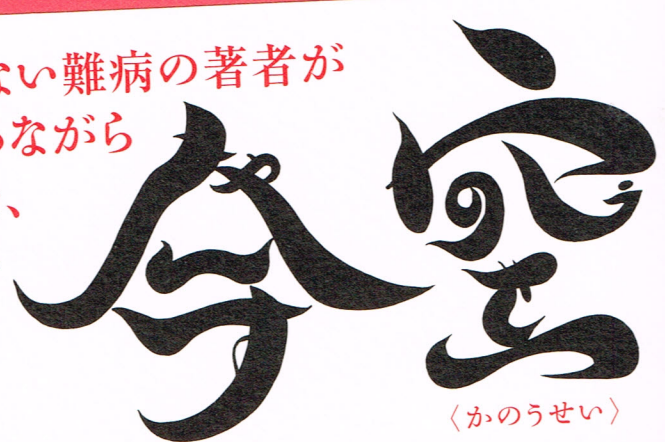 ない難病の著者が
ながら
、
今空
〈かのうせい〉